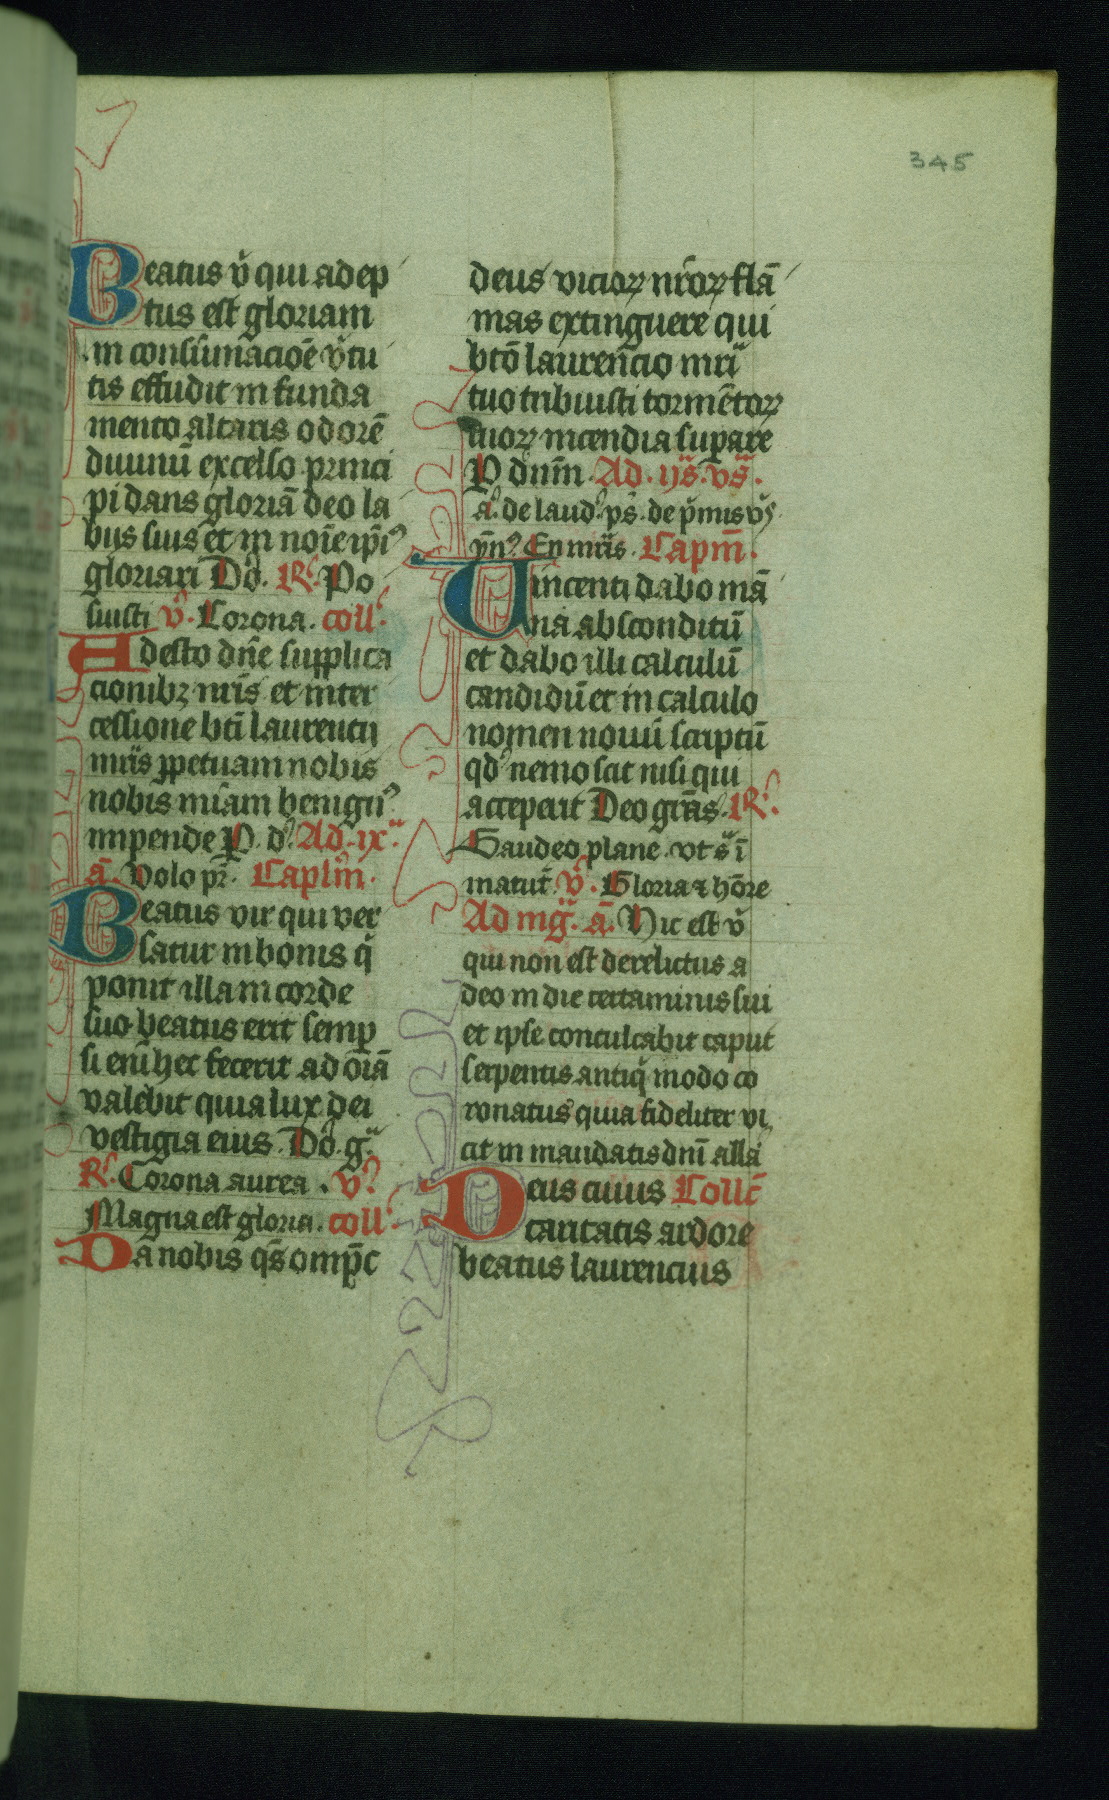 345
Beatus v̾ qui adep
tus est gloriam
in consūmacioē v̾tu
tis effudit in funda
mento altaris odorē
diuinū excelso princi
pi dans gloriā deo la
bus suis et in noīe ip̄i᷒
gloriari Dō. R̸. Po
suisti v̾. Corona. coll᷒
Adesto dn̄e supplica
cionibꝫ nr̄is et inter
cessione bt̄i laurencij
mr̄is ꝑpetuam nobis
nobis mīam benign᷒
impende P. d᷒. Ad .ix.
a᷒. Volo pr̄. Caplm̄.
Beatus vir qui ver
satur in bonis q̄
ponit illa in corde
suo beatus erit semꝑ
si eni̅ hec fecerit ad oīa
valebit quia lux dei
vestigia eius. Dō. g̅.
R̸. Corona aurea. v̾
Magna est gloria. coll᷒
Da nobis qs̄ omp̄c
deus vicioꝝ nr̄oꝝ flā
mas extinguere qui
bt̄o laurencio mr̄i
tuo tribuisti tormētoꝝ
suoꝝ incendia suꝑare
P dnm̄. Ad .ijs̄. vs̄.
a᷒. de laud᷒ ps̄. de p̄mis vs̄
ym̄᷒. En mr̄is. Capm̄.
Uincenti dabo mā
na absconditū
et dabo illi calculū
candidū et in calculo
nomen nouū scriptū
qd᷒ nemo scit nisi qui
acceperit Deo grās. R̸.
Gaudeo plane. vt s̄ ī
matut̄. v̾. Gloria ⁊ hōre
Ad mg̅. a᷒. Hic est v̾
qui non est derelictus a
deo in die certaminis sui
et ipse conculcabit caput
serpentis antiq̄ modo co
ronatus quia fideliter vi
cit in mandatis dn̄i allā
Deus cuius Collc̄
caritatis ardore
beatus laurencius